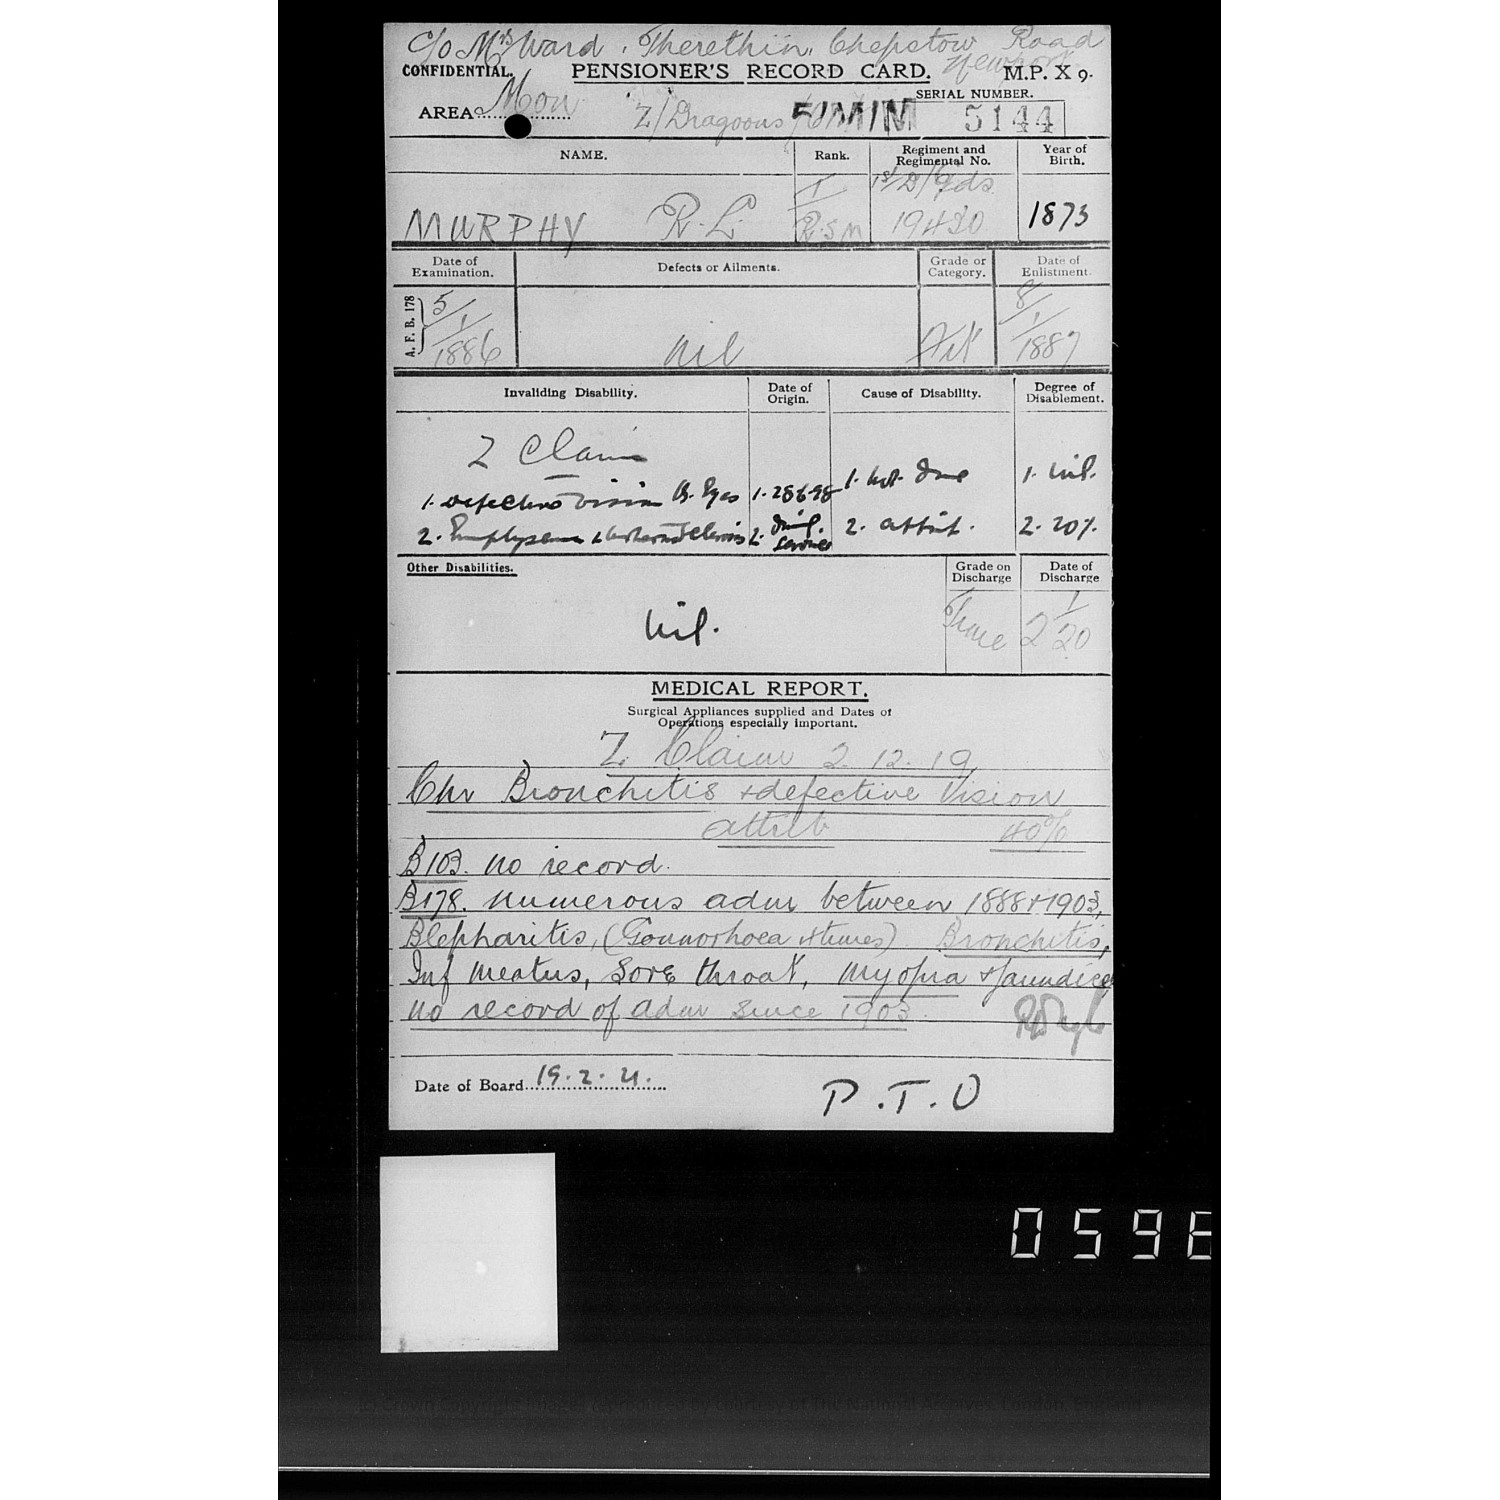 C/o Mrs Ward, Therethin, Chepstow Road
Newport
CONFIDENTIAL. PENSIONER'S RECORD CARD. M.P. X 9.
SERIAL NUMBER.
AREA Mon Z/Dragoons 5/M/M 5144
NAME. Rank. Regiment and Regimental No. Year of Birth.
MURPHY R. L. T/R.S.M 1st D/Gds 19420 1873
Date of Examination. Defects or Ailments. Grade or Category. Date of Enlistment.
A. F. B. 178 5/1/1886 nil Fit 8/1/1887
Invaliding Disability. Date of Origin. Cause of Disability. Degree of Disablement.
Z Claim
1. defective vision B. Eyes 1. 28.6.98 1. Not due 1. nil.
2. Emphysema 2. 2. attrib. 2. 20%
Other Disabilities. Grade on Discharge Date of Discharge
nil. 2/1/20
MEDICAL REPORT.
Surgical Appliances supplied and Dates of
Operations especially important.
Z. Claim 2. 12. 19
Chr Bronchitis + defective Vision
attrib 40%
B103. no record.
B178. numerous adm between 1888 + 1903,
Blepharitis, (Gonnorhoea × times) Bronchitis,
Inf meatus, Sore throat, myopia + Jaundice
no record of adm since 1903.
Date of Board 19.2.21.
P.T.O
059
(c) Crown Copyright Images reproduced by courtesy of The National Archives, London, England